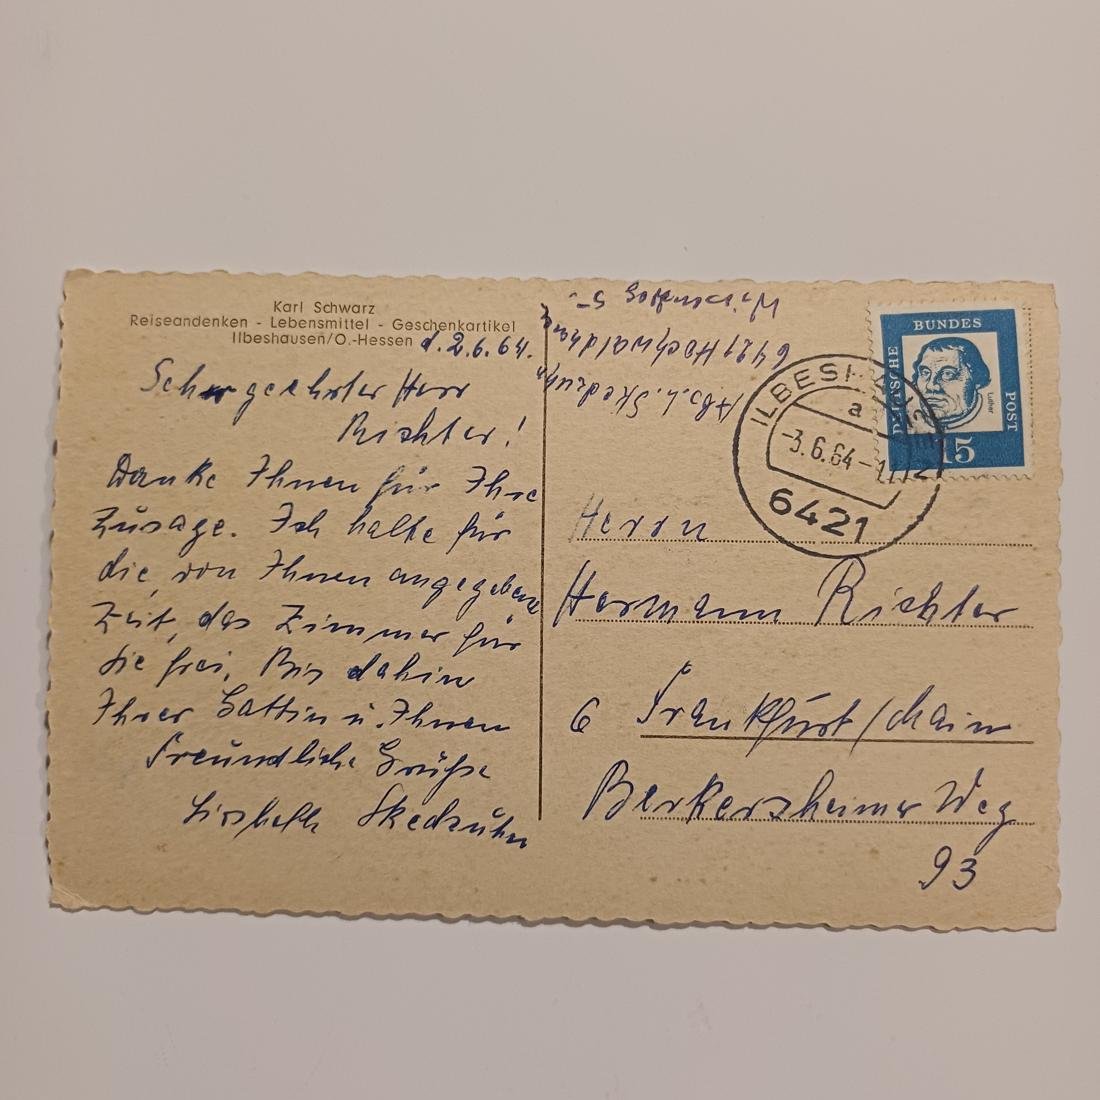 Karl Schwarz
Reiseandenken - Lebensmittel - Geschenkartikel
Ilbeshausen/O.-Hessen
d. 2.6.64.
Sehr geehrter Herr
Richter!
Danke Ihnen für Ihre
Zusage. Ich halte für
die, von Ihnen angegebene
Zeit, das Zimmer für
Sie frei. Bis dahin
Ihrer Gattin u. Ihnen
Freundliche Grüße
Lisbeth Skedzuhn
Abs. L. Skedzuhn
6421 Hochwaldhau
5
DEUTSCHE BUNDES POST
Luther
15
ILBESH
a
-3.6.64-
6421
Herrn
Hermann Richter
6 Frankfurt/Main
Berkersheimer Weg
93